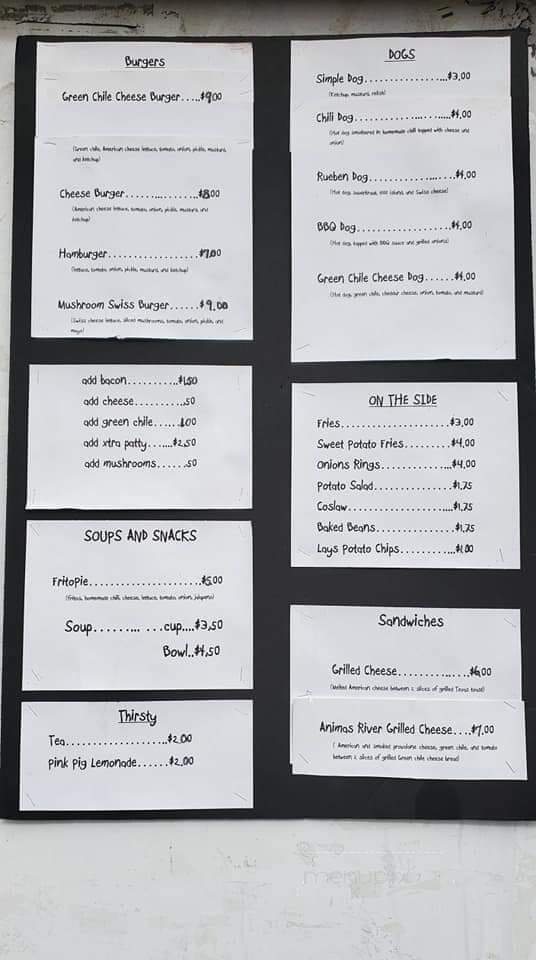 Burgers
Green Chile Cheese Burger.....$9.00
(Green chile, American cheese lettuce, tomato, onion, pickle, mustard,
and ketchup)
Cheese Burger..................$8.00
(American cheese lettuce, tomato, onion, pickle, mustard, and
ketchup)
Hamburger......................$7.00
(lettuce, tomato, onion, pickle, mustard, and ketchup)
Mushroom Swiss Burger......$9.00
(Swiss cheese lettuce, sliced mushrooms, tomato, onion, pickle, and
mayo)
add bacon..........$1.50
add cheese..........50
add green chile......1.00
add xtra patty......$2.50
add mushrooms......50
SOUPS AND SNACKS
Fritopie......................$5.00
(Fritos, homemade chili, cheese, lettuce, tomato, onion, jalapeno)
Soup........ ...cup....$3.50
Bowl..$4.50
Thirsty
Tea...................$2.00
Pink Pig Lemonade......$2.00
DOGS
Simple Dog..................$3.00
(Ketchup, mustard, relish)
Chili Dog......................$4.00
(Hot dog smothered in homemade chili topped with cheese and
onion)
Rueben Dog....................$4.00
(Hot dog, sauerkraut, and Swiss cheese)
BBQ Dog....................$4.00
(Hot dog, topped with BBQ sauce and grilled onions)
Green Chile Cheese Dog......$4.00
(Hot dog, green chile, cheddar cheese, onion, tomato, and mustard)
ON THE SIDE
Fries.......................$3.00
Sweet Potato Fries.........$4.00
Onions Rings..............$4.00
Potato Salad...............$1.75
Coslaw......................$1.75
Baked Beans...............$1.75
Lays Potato Chips..........$1.00
Sandwiches
Grilled Cheese..............$6.00
(Melted American cheese between 2 slices of grilled Texas toast)
Animas River Grilled Cheese....$7.00
( American and smoked provolone cheese, green chile, and tomato
between 2 slices of grilled Green chile cheese bread)